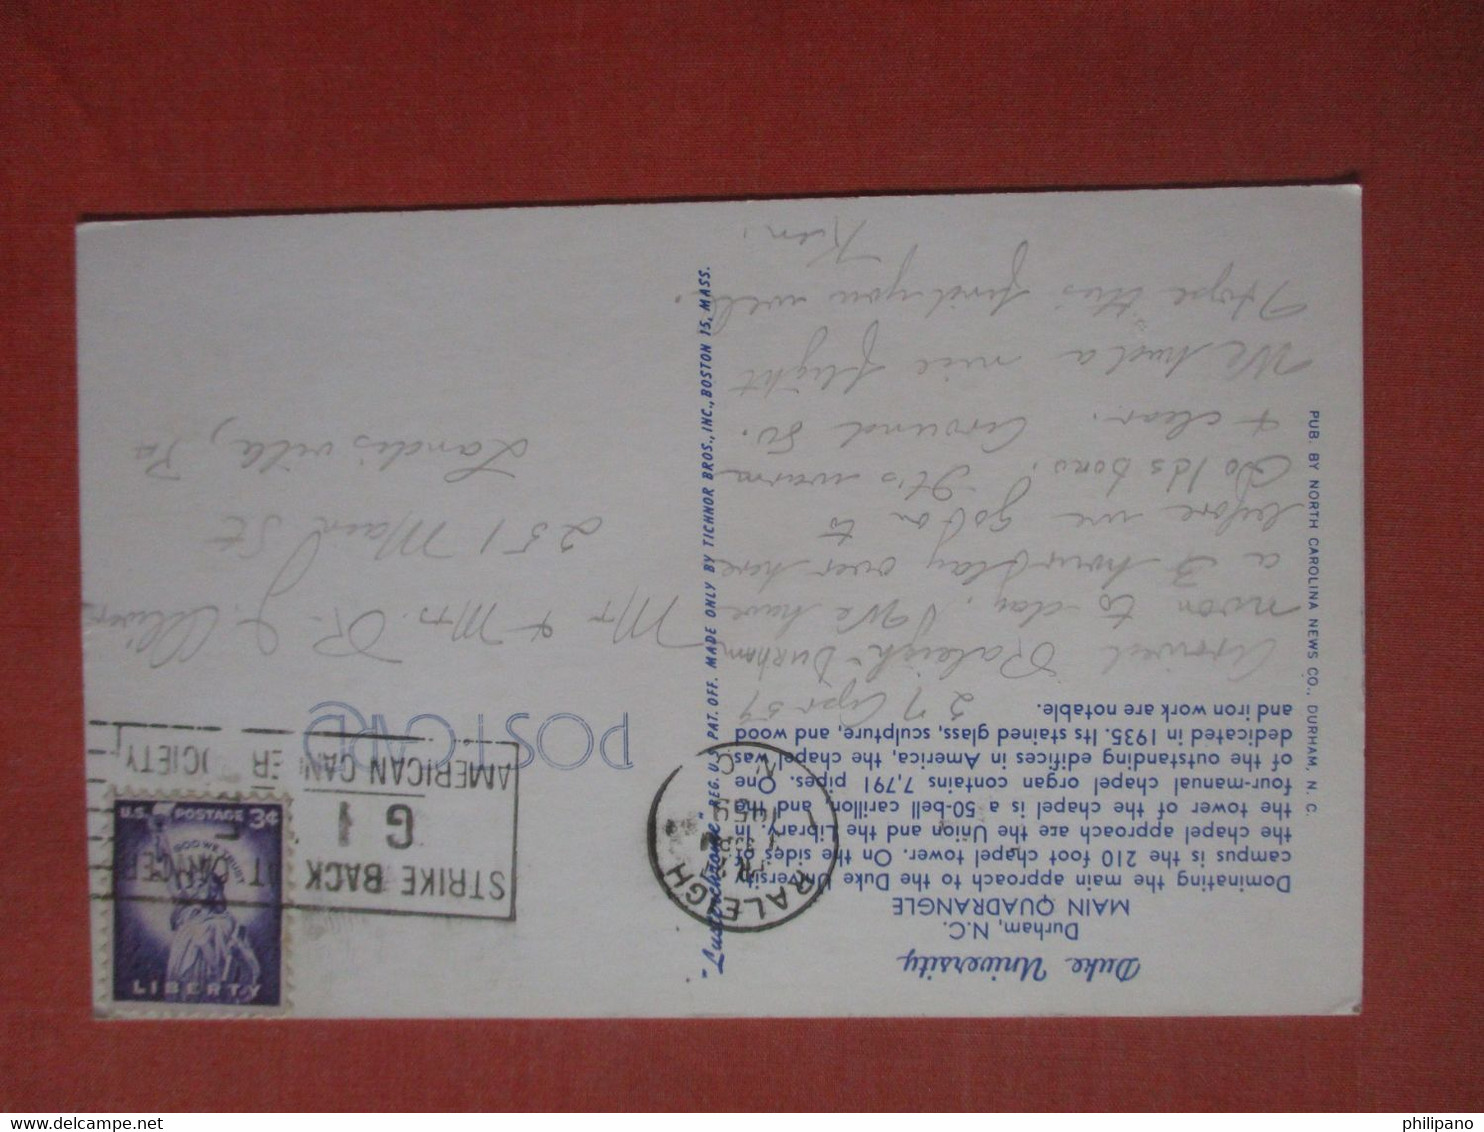 Duke University
Durham, N.C.
MAIN QUADRANGLE
Dominating the main approach to the Duke University
campus is the 210 foot chapel tower. On the sides of
the chapel approach are the Union and the Library. In
the tower of the chapel is a 50-bell carillon, and the
four-manual chapel organ contains 7,791 pipes. One
of the outstanding edifices in America, the chapel was
dedicated in 1935. Its stained glass, sculpture, and wood
and iron work are notable.
27 Apr 59
Arrived Raleigh-Durham
noon to day. We have
a 3 hour lay over here
before we go on to
Goldsboro. It is warm
+ clear. Around 80.
We had a nice flight
Hope this find you well.
Ken.
PUB. BY NORTH CAROLINA NEWS CO., DURHAM, N. C.
"Lusterchrome" REG. U.S. PAT. OFF. MADE ONLY BY TICHNOR BROS., INC., BOSTON 15, MASS.
POST CARD
RALEIGH
APR
1959
N.C.
STRIKE BACK
AT CANCER
GI
AMERICAN CANCER SOCIETY
U.S. POSTAGE 3¢
IN GOD WE TRUST
LIBERTY
Mr + Mrs. R. J. Oliver
251 Main St
Landisville, Pa
philipano